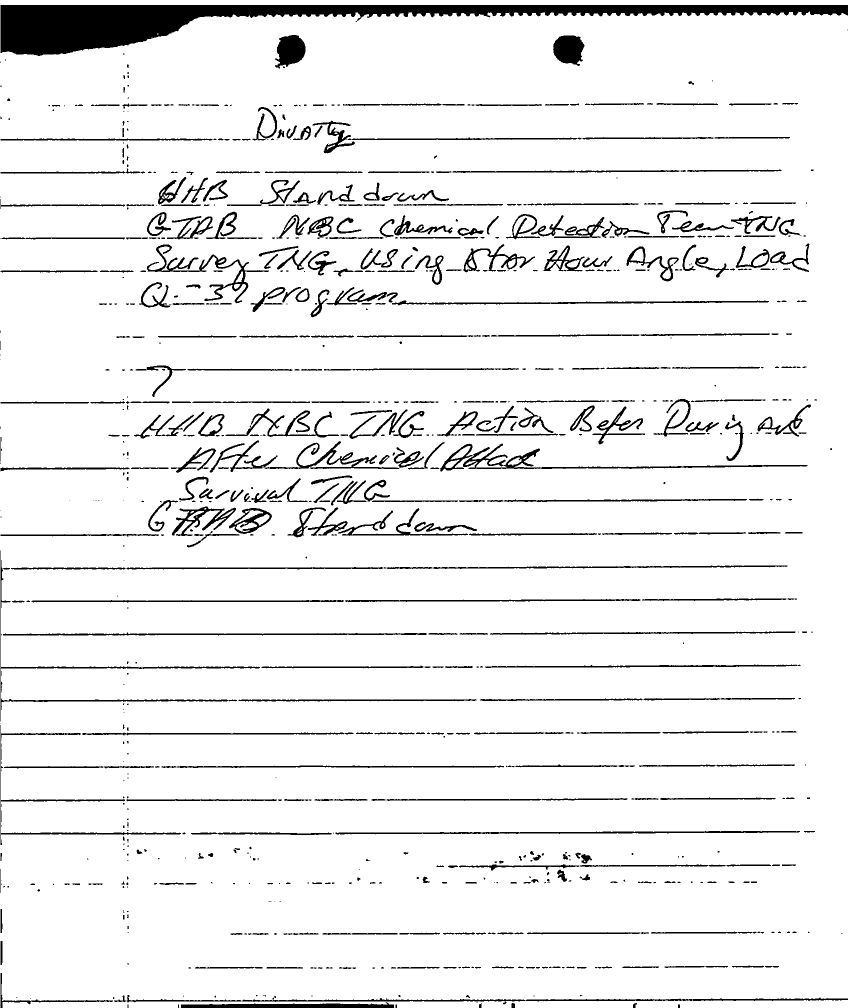 DivArty
HHB Stand down
GTAB NBC Chemical Detection Team TNG
Survey TNG, Using Star Hour Angle, Load
Q-37 program.
7
HHB NBC TNG Action Befor During and
After Chemical Attack
Survival TNG
GTAB Stand down